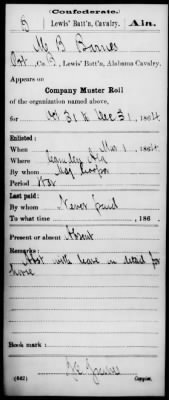 (Confederate.)
B Lewis' Batt'n, Cavalry. Ala.
M B Barnes
Pvt, Co. B, Lewis' Batt'n, Alabama Cavalry.
Appears on
Company Muster Roll
of the organization named above,
for Oct 31 to Dec 31, 1864
Enlisted:
When Mar 1, 1864
Where Camden Ala
By whom Maj
Period War
Last paid:
By whom Never paid
To what time , 186 .
Present or absent Absent
Remarks: Absent with leave on detail for
horse
Book mark:
(642) Copyist.